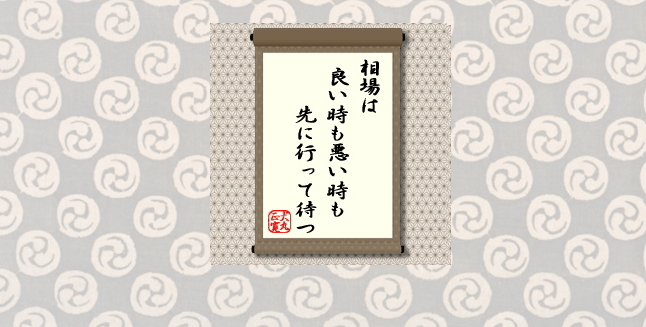 相場は
良い時も悪い時も
先に行って待つ